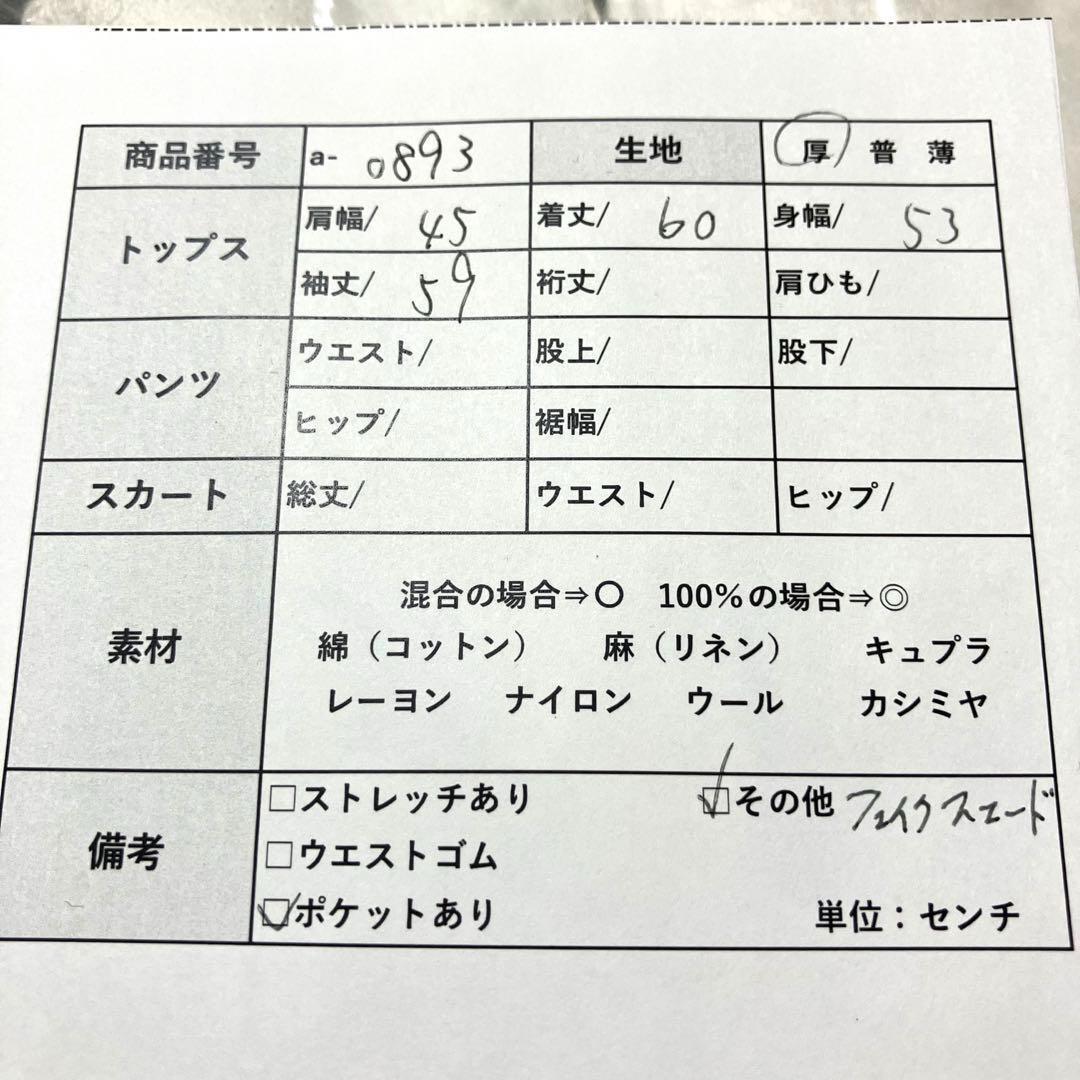 商品番号 a- 0893 生地 厚 普 薄
トップス 肩幅/ 45 着丈/ 60 身幅/ 53
袖丈/ 59 裄丈/ 肩ひも/
パンツ ウエスト/ 股上/ 股下/
ヒップ/ 裾幅/
スカート 総丈/ ウエスト/ ヒップ/
素材 混合の場合⇒〇 100%の場合⇒◎
綿（コットン） 麻（リネン） キュプラ
レーヨン ナイロン ウール カシミヤ
備考 □ストレッチあり ☑その他 フェイクスエード
□ウエストゴム
☑ポケットあり 単位：センチ